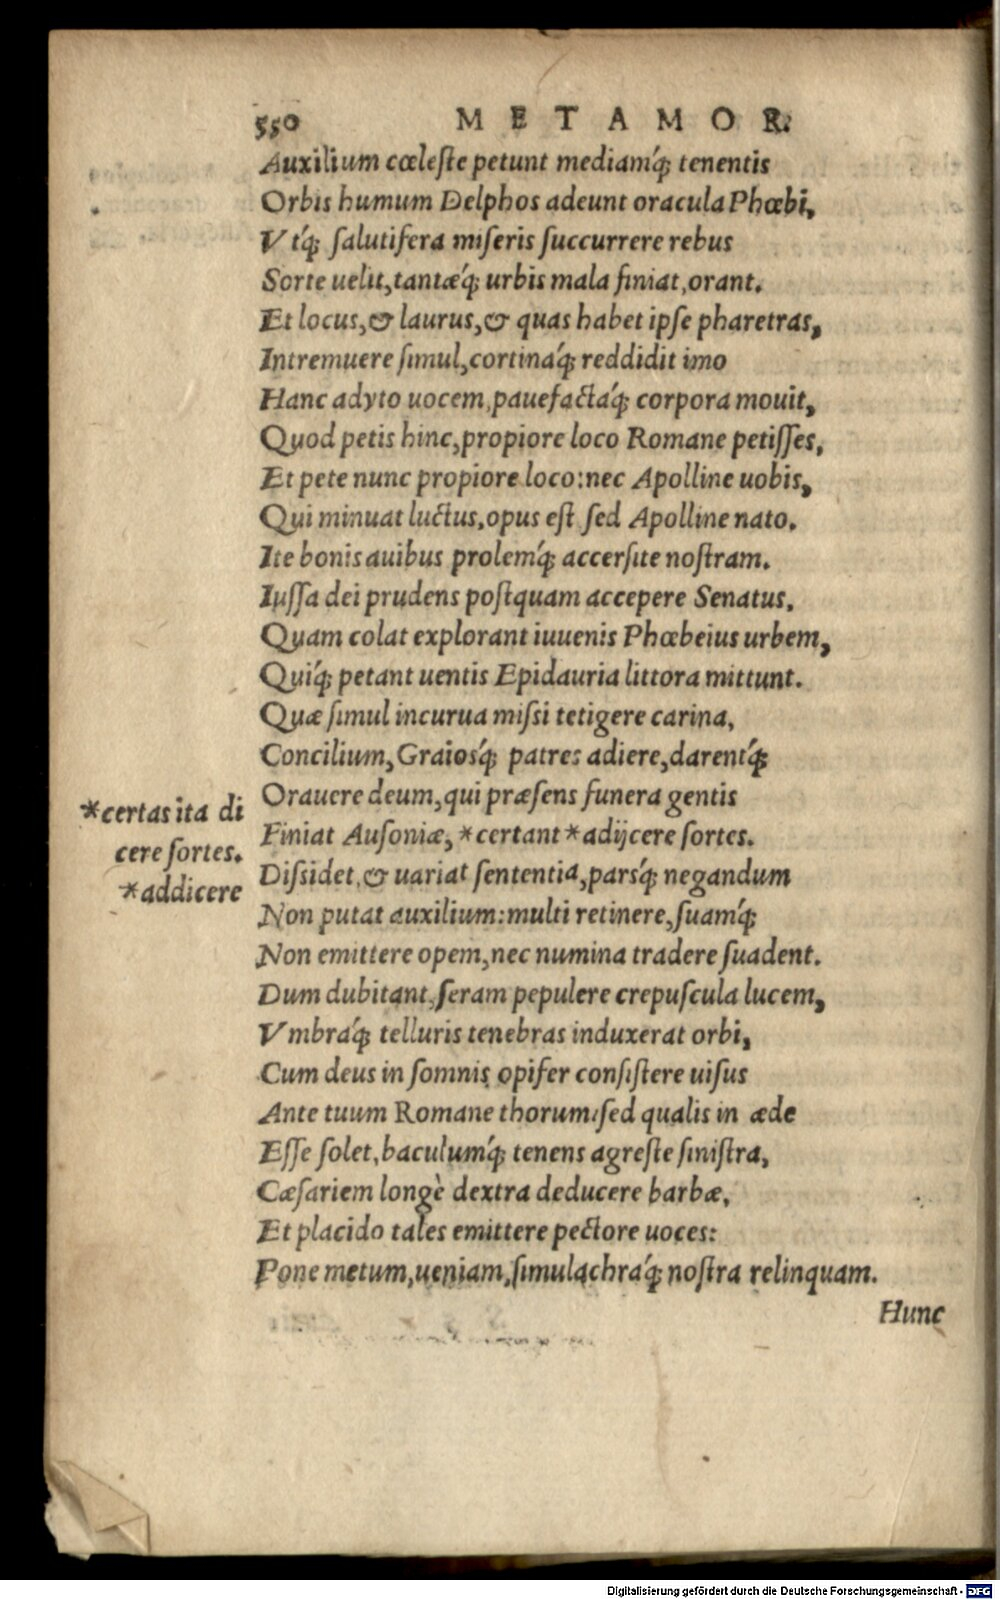 550 METAMOR.
Auxilium cœleste petunt mediamq́; tenentis
Orbis humum Delphos adeunt oracula Phœbi,
Vtq́; salutifera miseris succurrere rebus
Sorte uelit, tantæq́; urbis mala finiat, orant.
Et locus, & laurus, & quas habet ipse pharetras,
Intremuere simul, cortinaq́; reddidit imo
Hanc adyto uocem, pauefactaq́; corpora mouit,
Quod petis hinc, propiore loco Romane petisses,
Et pete nunc propiore loco: nec Apolline uobis,
Qui minuat luctus, opus est sed Apolline nato.
Ite bonis auibus prolemq́; accersite nostram.
Iussa dei prudens postquam accepere Senatus,
Quam colat explorant iuuenis Phœbeius urbem,
Quiq́; petant uentis Epidauria littora mittunt.
Quæ simul incurua missi tetigere carina,
Concilium, Graiosq́; patres adiere, darentq́;
Orauere deum, qui præsens funera gentis
*certas ita di
Finiat Ausoniæ, *certant *adijcere sortes.
cere sortes.
Dissidet, & uariat sententia, parsq́; negandum
*addicere
Non putat auxilium: multi retinere, suamq́;
Non emittere opem, nec numina tradere suadent.
Dum dubitant, seram pepulere crepuscula lucem,
Vmbraq́; telluris tenebras induxerat orbi,
Cum deus in somnis opifer consistere uisus
Ante tuum Romane thorum: sed qualis in æde
Esse solet, baculumq́; tenens agreste sinistra,
Cæsariem longè dextra deducere barbæ,
Et placido tales emittere pectore uoces:
Pone metum, ueniam, simulachraq́; nostra relinquam.
Hunc
Digitalisierung gefördert durch die Deutsche Forschungsgemeinschaft - DFG